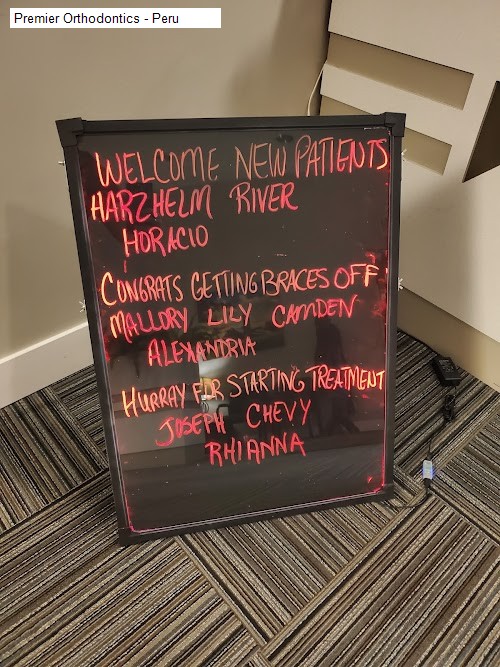 Premier Orthodontics - Peru
WELCOME NEW PATIENTS
HARZHELM RIVER
HORACIO
CONGRATS GETTING BRACES OFF
MALLORY LILY CAMDEN
ALEXANDRIA
HURRAY FOR STARTING TREATMENT
JOSEPH CHEVY
RHIANNA